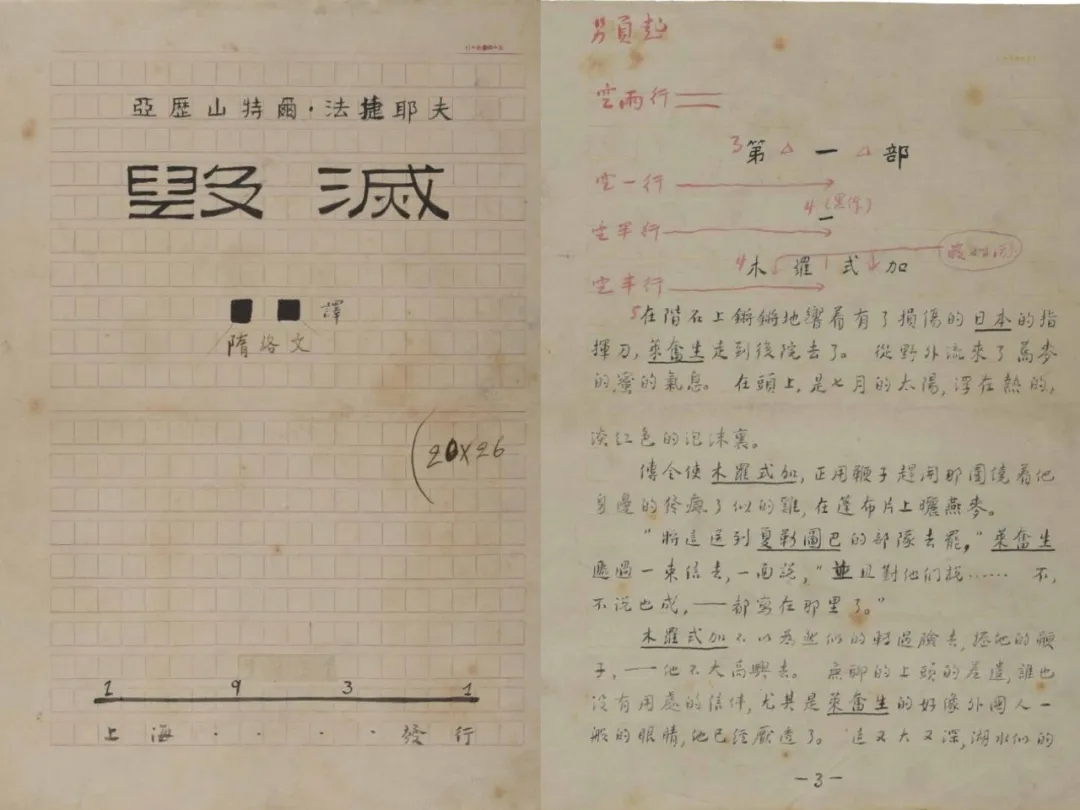 亞歷山特爾·法捷耶夫
毀滅
■ ■ 譯
隋洛文
(20×26
1 9 3 1
上海 · · · · 發行
另頁起
空兩行
3第 一 部
空一行
4(黑体)
一
空半行
4木羅式加
空半行
5在階石上鏘鏘地響着有了損傷的日本的指
揮刀,萊奮生走到後院去了。 從野外流來了蕎麥
的蜜的氣息。 在頭上,是七月的太陽,浮在熱的,
淡紅色的泡沫裏。
傳令使木羅式加,正用鞭子趕開那圍繞着他
身邊的發瘋了似的雞,在蓬布片上曬燕麥。
“將這送到夏勒圖巴的部隊去罷,”萊奮生
遞過一束信去,一面說,“並且對他们說…… 不,
不说也成,——都寫在那里了。”
木羅式加不以為然似的轉過臉去,捲他的鞭
子,——他不大高興去。 無聊的上頭的差遣,誰也
没有用處的信件,尤其是萊奮生的好像外國人一
般的眼睛,他已經厭透了。 這又大又深,湖水似的
—3—